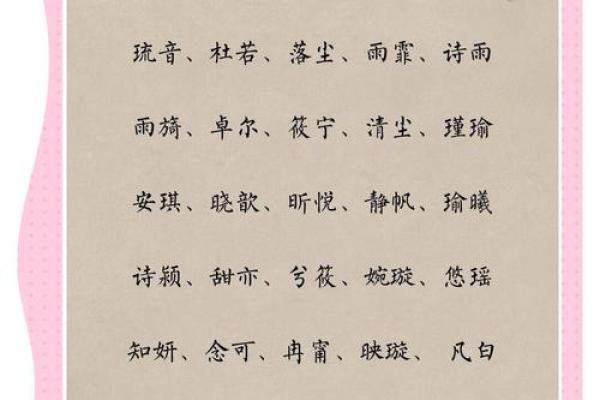 琉音、杜若、落尘、雨霏、诗雨
雨旖、卓尔、筱宁、清尘、瑾瑜
安琪、晓歆、昕悦、静帆、瑜曦
诗颖、甜亦、兮筱、婉璇、悠瑶
知妍、念可、冉甯、映璇、凡白